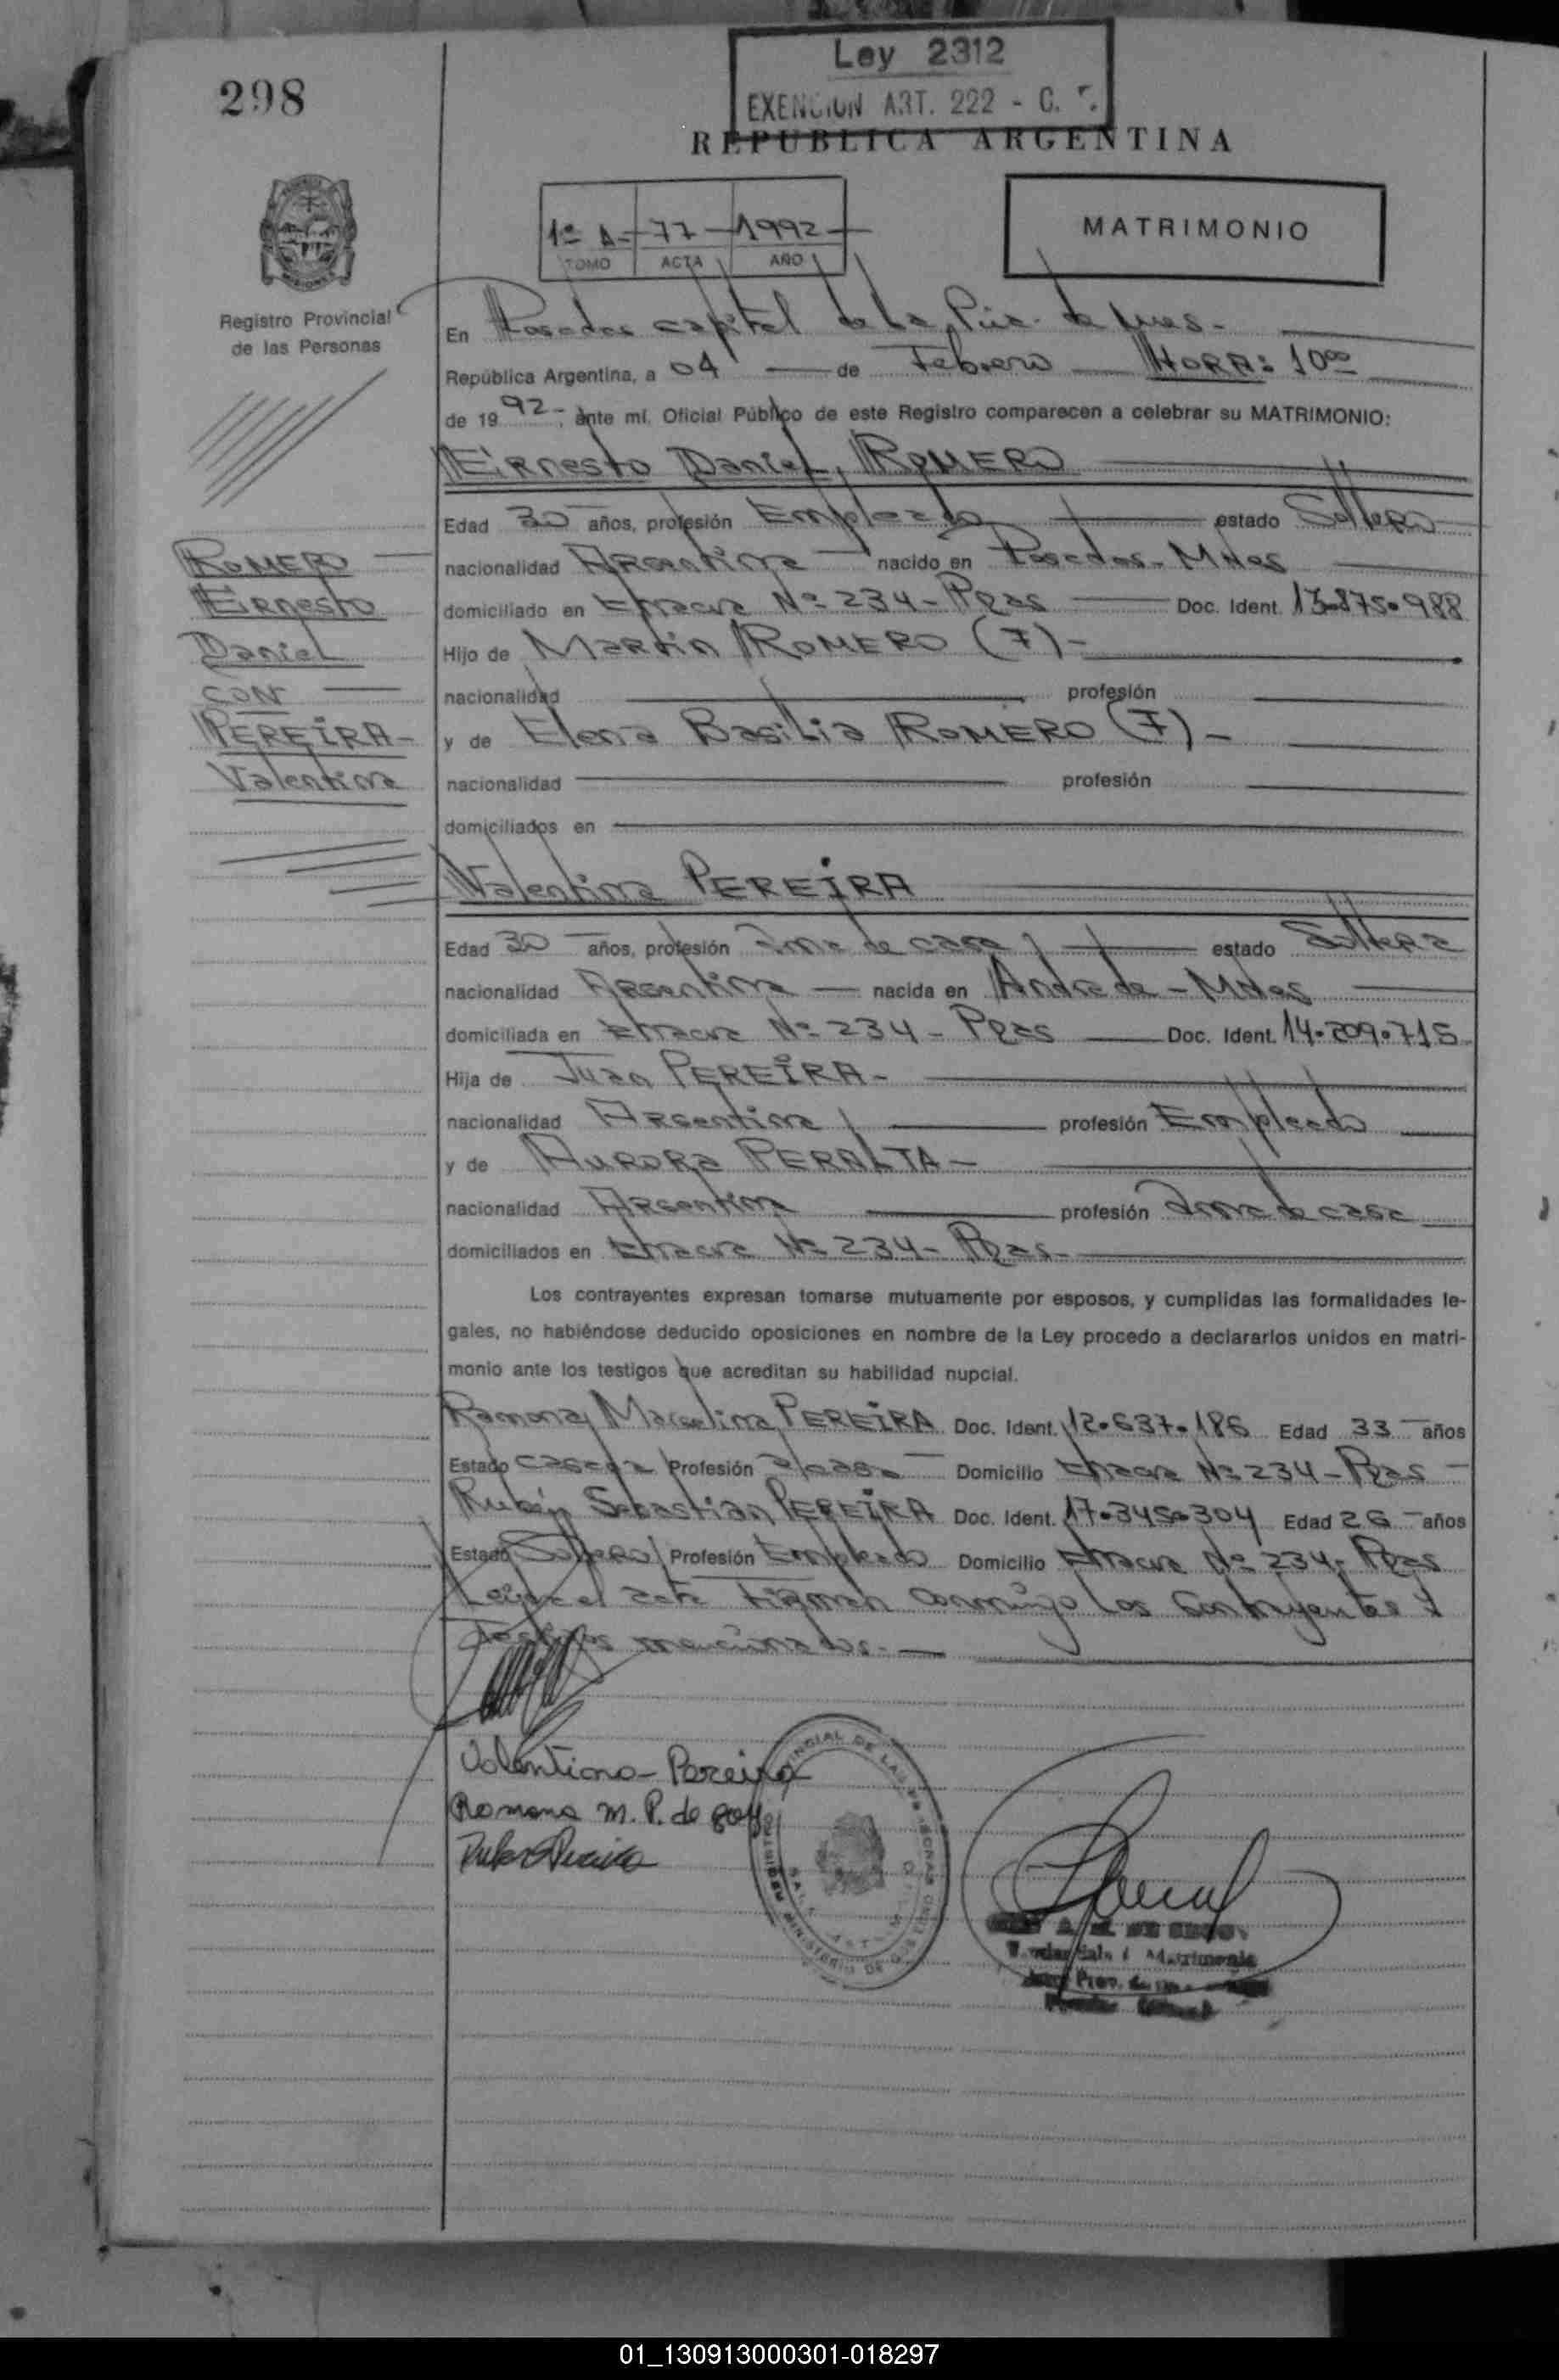 298
Ley 2312
EXENCION ART. 222 - C. F.
REPUBLICA ARGENTINA
1º A- 77 - 1992 -
TOMO ACTA AÑO
MATRIMONIO
Registro Provincial
de las Personas
En Posadas capital de la Pcia. de Mnes.
República Argentina, a 04 de Febrero HORA: 10⁰⁰
de 1992 - ante mí, Oficial Público de este Registro comparecen a celebrar su MATRIMONIO:
Ernesto Daniel, ROMERO
Edad 30 años, profesión Empleado estado Soltero
nacionalidad Argentina nacido en Posadas - Mnes
domiciliado en Chacra Nº 234 - Pdas Doc. Ident. 13.875.988
Hijo de Martin ROMERO (F) -
nacionalidad profesión
y de Elena Basilia ROMERO (F) -
nacionalidad profesión
domiciliados en
ROMERO
Ernesto
Daniel
CON
PEREIRA -
Valentina
Valentina PEREIRA
Edad 30 años, profesión Ama de casa estado Soltera
nacionalidad Argentina nacida en Andrade - Mnes
domiciliada en Chacra Nº 234 - Pdas Doc. Ident. 14.209.715
Hija de Juan PEREIRA -
nacionalidad Argentina profesión Empleado
y de Aurora PERALTA -
nacionalidad Argentina profesión Ama de casa
domiciliados en Chacra Nº 234 - Pdas -
Los contrayentes expresan tomarse mutuamente por esposos, y cumplidas las formalidades le-
gales, no habiéndose deducido oposiciones en nombre de la Ley procedo a declararlos unidos en matri-
monio ante los testigos que acreditan su habilidad nupcial.
Ramona Marcelina PEREIRA Doc. Ident. 12.637.186 Edad 33 años
Estado casada Profesión a/casa Domicilio Chacra Nº 234 - Pdas -
Rubén Sebastian PEREIRA Doc. Ident. 17.345.304 Edad 26 años
Estado Soltero Profesión Empleado Domicilio Chacra Nº 234 - Pdas
Leída el acta firman conmigo los contrayentes y
Testigos mencionados. -
Valentina - Pereira
Ramona M. P. de
Ruben Pereira
01_130913000301-018297